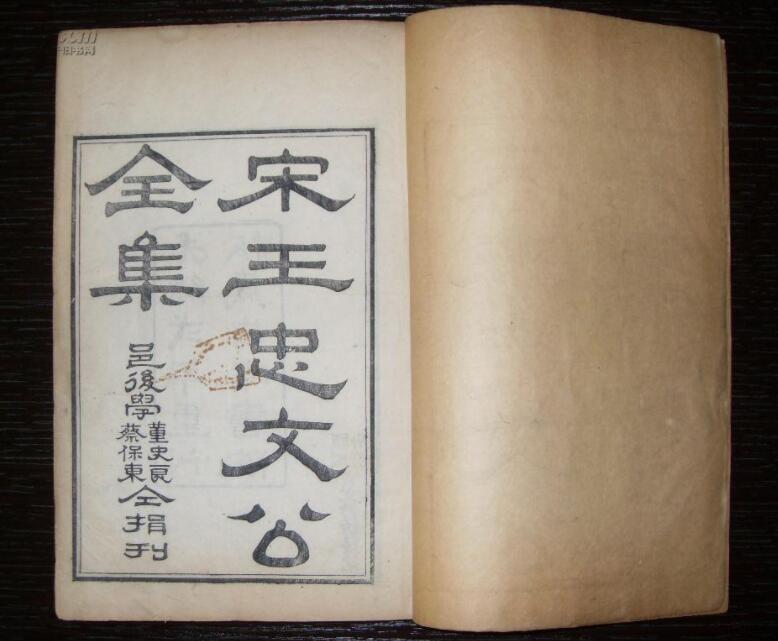 宋王忠文公
全集
邑後學
董史良
蔡保東
仝捐刊